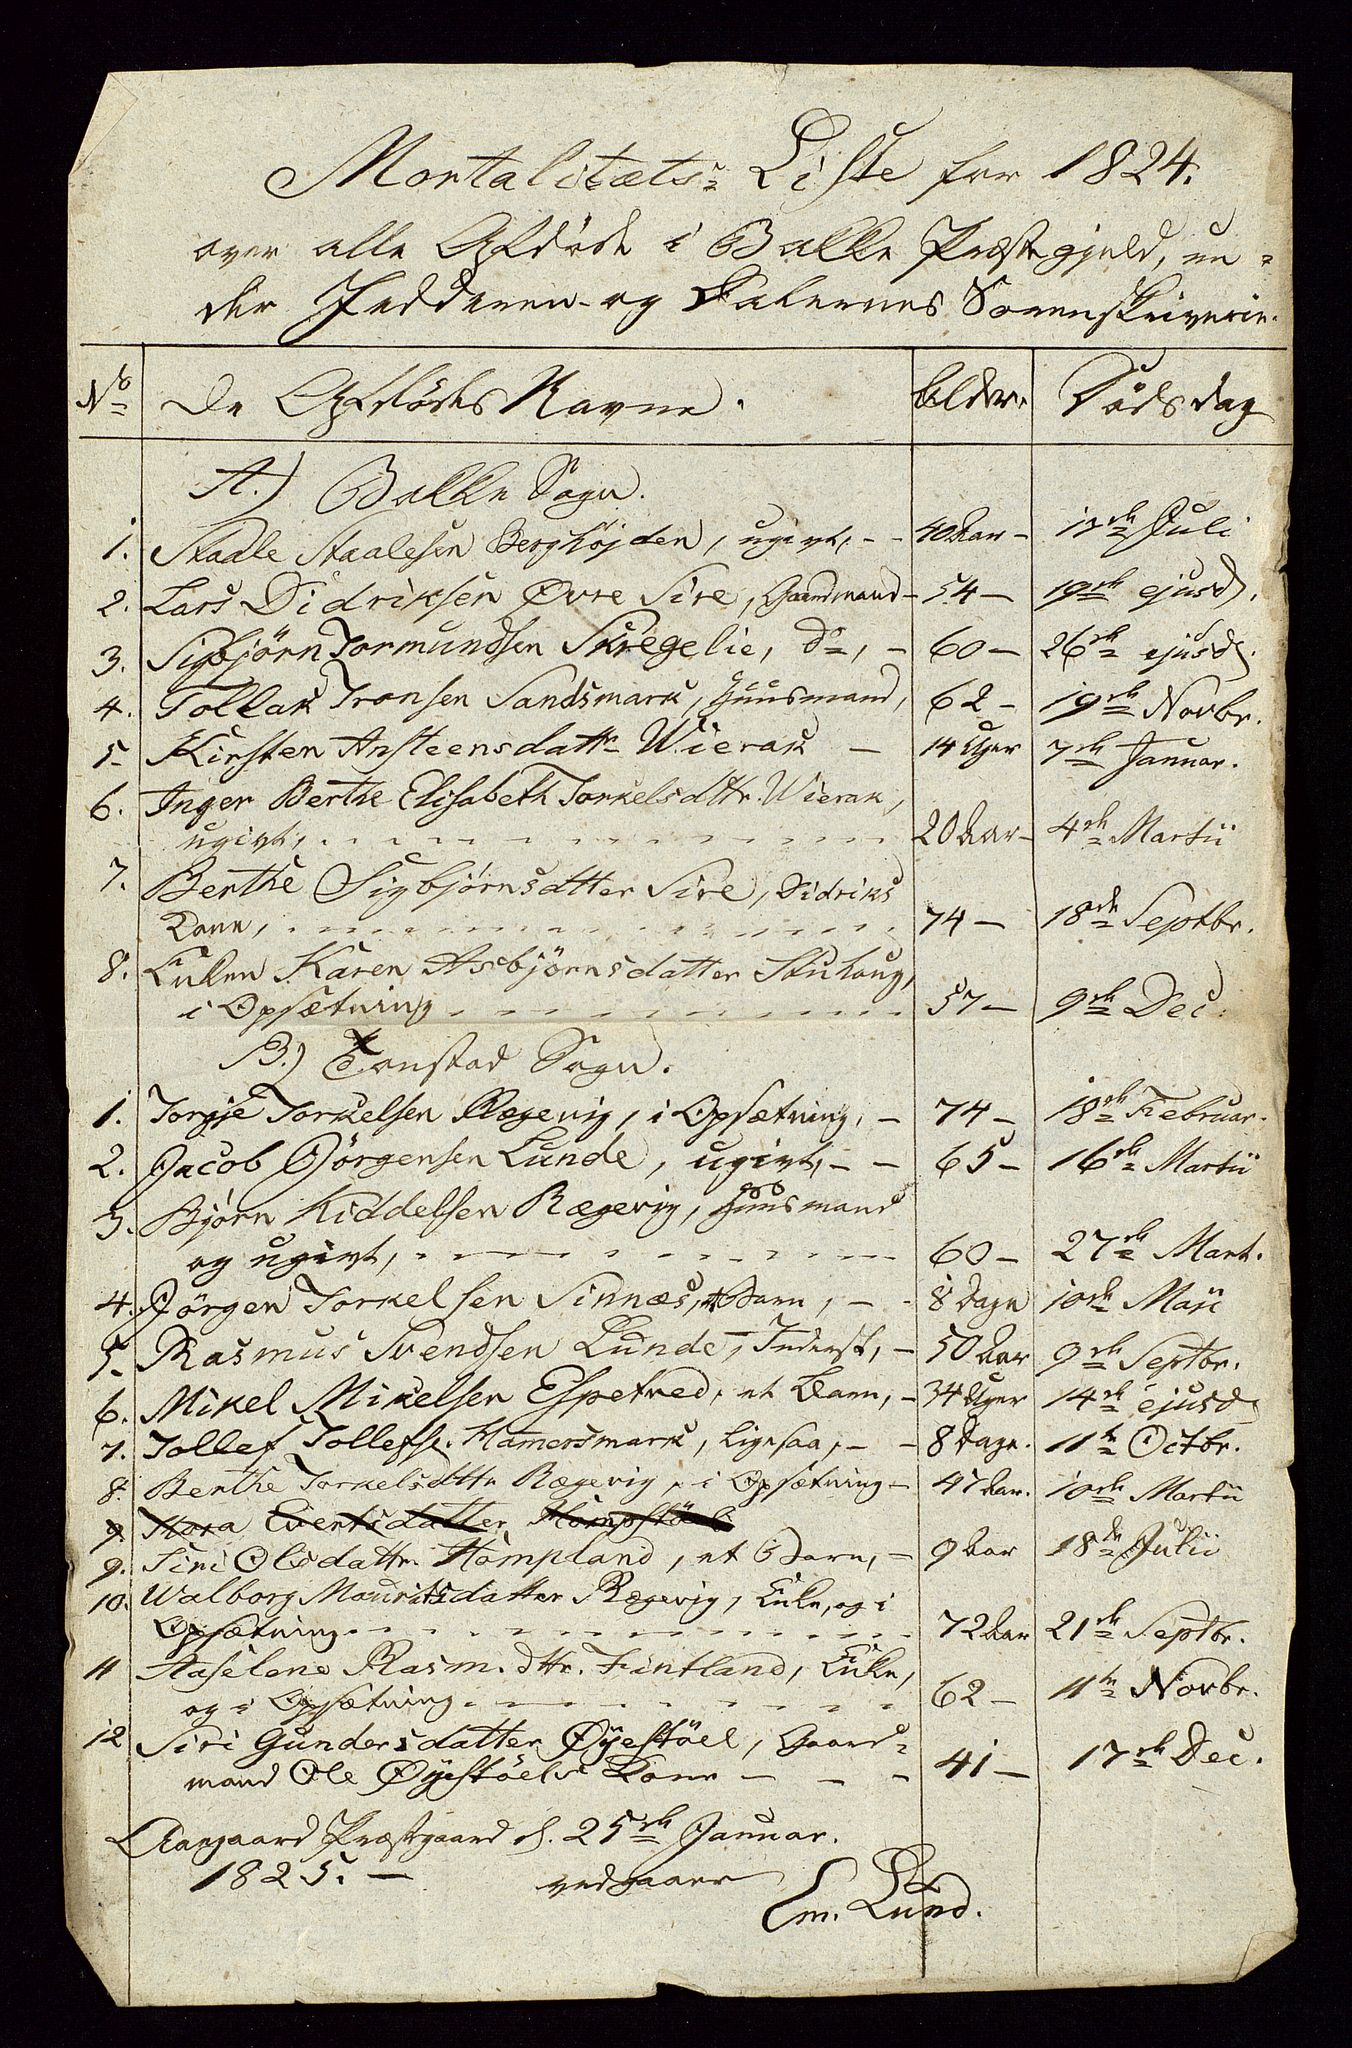 Mortalitæts- Liste for 1824.
over alle Afdøde i Bakke Præstegjeld, un-
der Jedderen- og Dalernes Sorenskriverie.
No De Afdødes Navne. Alder. Dødsdag
A.) Bakke Sogn.
1. Staale Staalesen Berghøjden, ugivt, - - 40 Aar - 12te Juli
2. Lars Didriksen Øvre Sire, Gaardmand - 54 - 19de ejusd.
3. Sigbjørn Tormundsen Skregelie, do, - 60 - 26de ejusd.
4. Tollak Tronsen Sandsmark, Huusmand, 62 - 19de Novbr.
5. Kirsten Ansteensdattr Wierak - 14 Uger 7de Januar.
6. Inger Berthe Elisabeth Torkelsdttr. Wierak,
ugivt, - - - 20 Aar - 4de Martii
7. Berthe Sigbjørnsdtter Sire, Didriks
Kone, - - - 74 - 18de Septbr.
8. Enken Karen Asbjørnsdatter Stulaug,
i Opsætning - - - 57 - 9de Dec.
B.) Tonstad Sogn.
1. Torgje Torkelsen Rægevig, i Opsætning, - 74 - 18de Februar.
2. Jacob Jørgensen Lunde, ugivt, - - 65 - 16de Martii
3. Bjørn Kiddelsen Rægevig, Huusmand
og ugivt, - - - 60 - 27de Mart.
4. Jørgen Torkelsen Sinnæs, Barn, - - 8 Dage 10de Maii
5. Rasmus Svendsen Lunde, Inderst, - 50 Aar 9de Septbr.
6. Mikel Mikelsen Espetved, et Barn, - 34 Uger 14de ejusd
7. Tollef Tollefse. Hamersmark, ligesaa, - - 8 Dage. 11te Octbr.
8. Berthe Torkelsdttr Rægevig, i Opsætning - 47 Aar. 10de Martii
9. Evertsdatter
9. Siri Olsdattr. Hompland, et Barn, - 9 Aar 18de Julii
10. Walborg Mauritsdatter Rægevig, Enke, og i
Opsætning - - - 72 Aar 21de Septbr.
11 Aaselene Rasm.dttr. Fintland, Enke,
og i Opsætning - - - 62 - 11te Novbr.
12 Siri Gundersdatter Øyestöel, Gaard-
mand Ole Øyestöels Kone - - - 41 - 17de Dec.
Aangaard Præstgaard d. 25de Januar.
1825. - vedgaaer
Em. Lund.